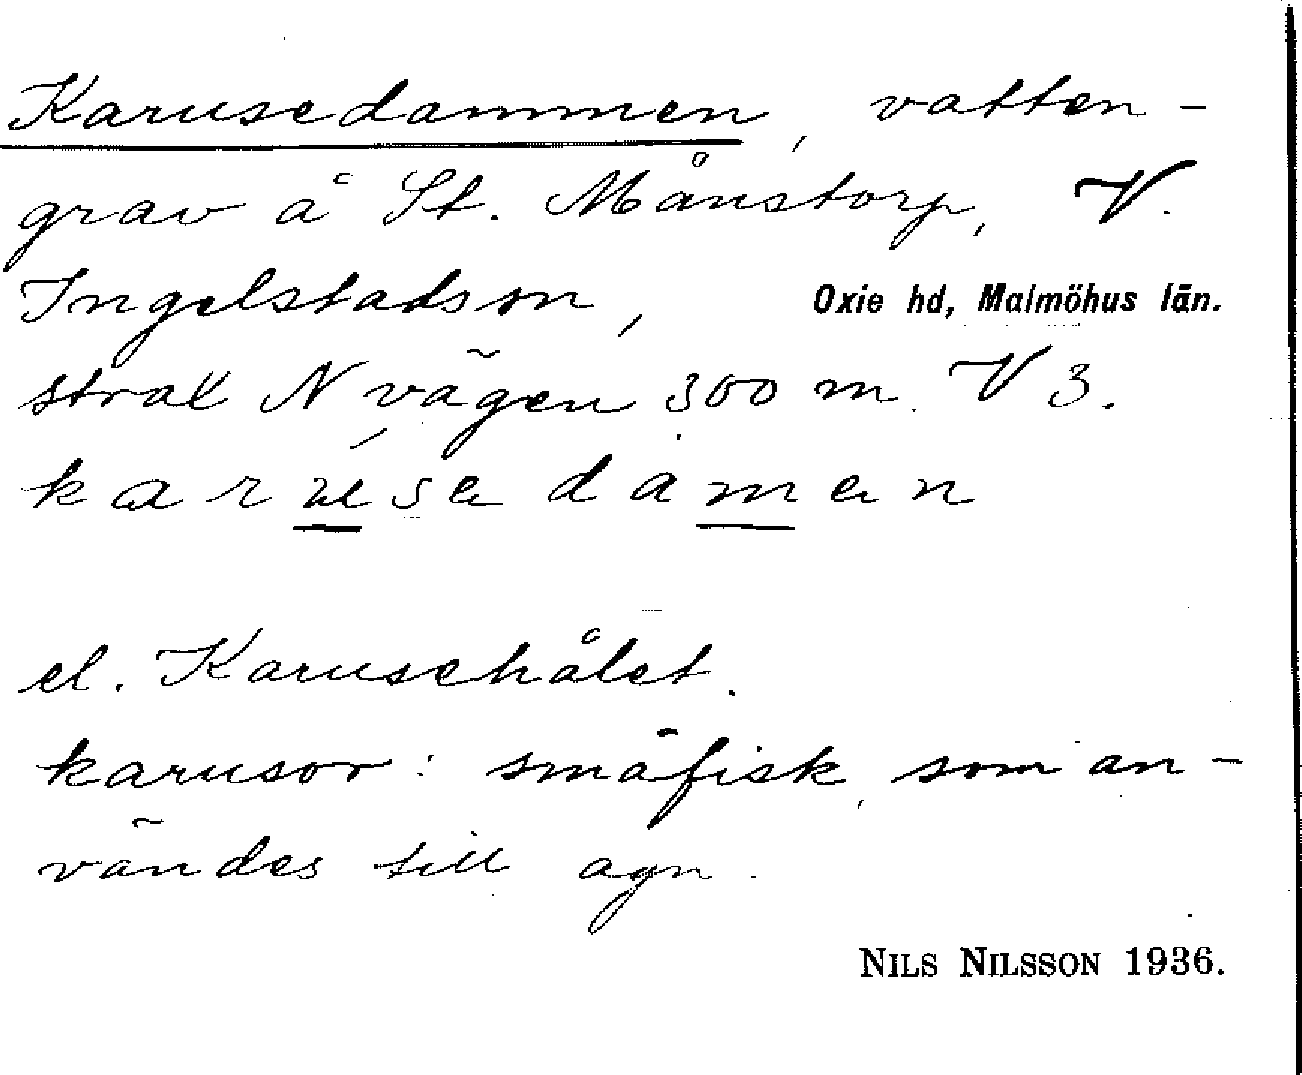 Karusedammen, vatten-
grav å St. Månstorp, V.
Ingelstads sn, Oxie hd, Malmöhus län.
strax N vägen 300 m V 3.
karúsedamen
el. Karusehålet.
karusor: småfisk, som an-
vändes till agn.
NILS NILSSON 1936.